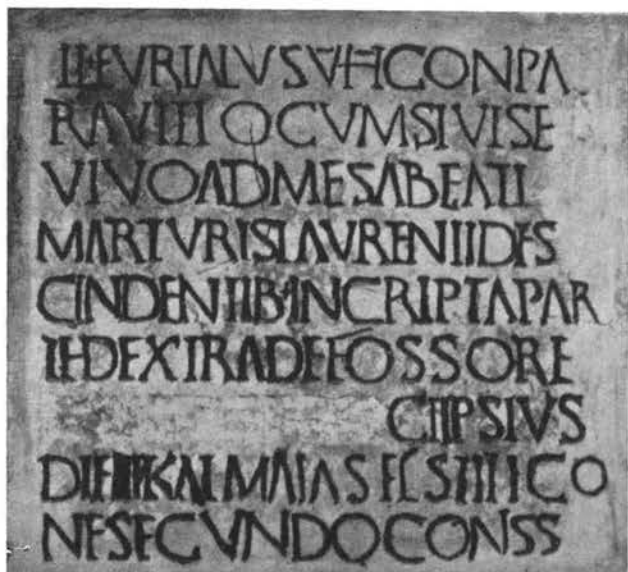 FLEVRIALVSVHCONPA
RAVITLOCVMSIVISE
VIVOADMESABEATI
MARTVRISLAVRENTIDES
CINDENTIBINCRIPTAPAR
TEDEXTRADEFOSSORE
CIIPSIVS
KALMAIASFLSTILICO
NESECVNDOCONSS